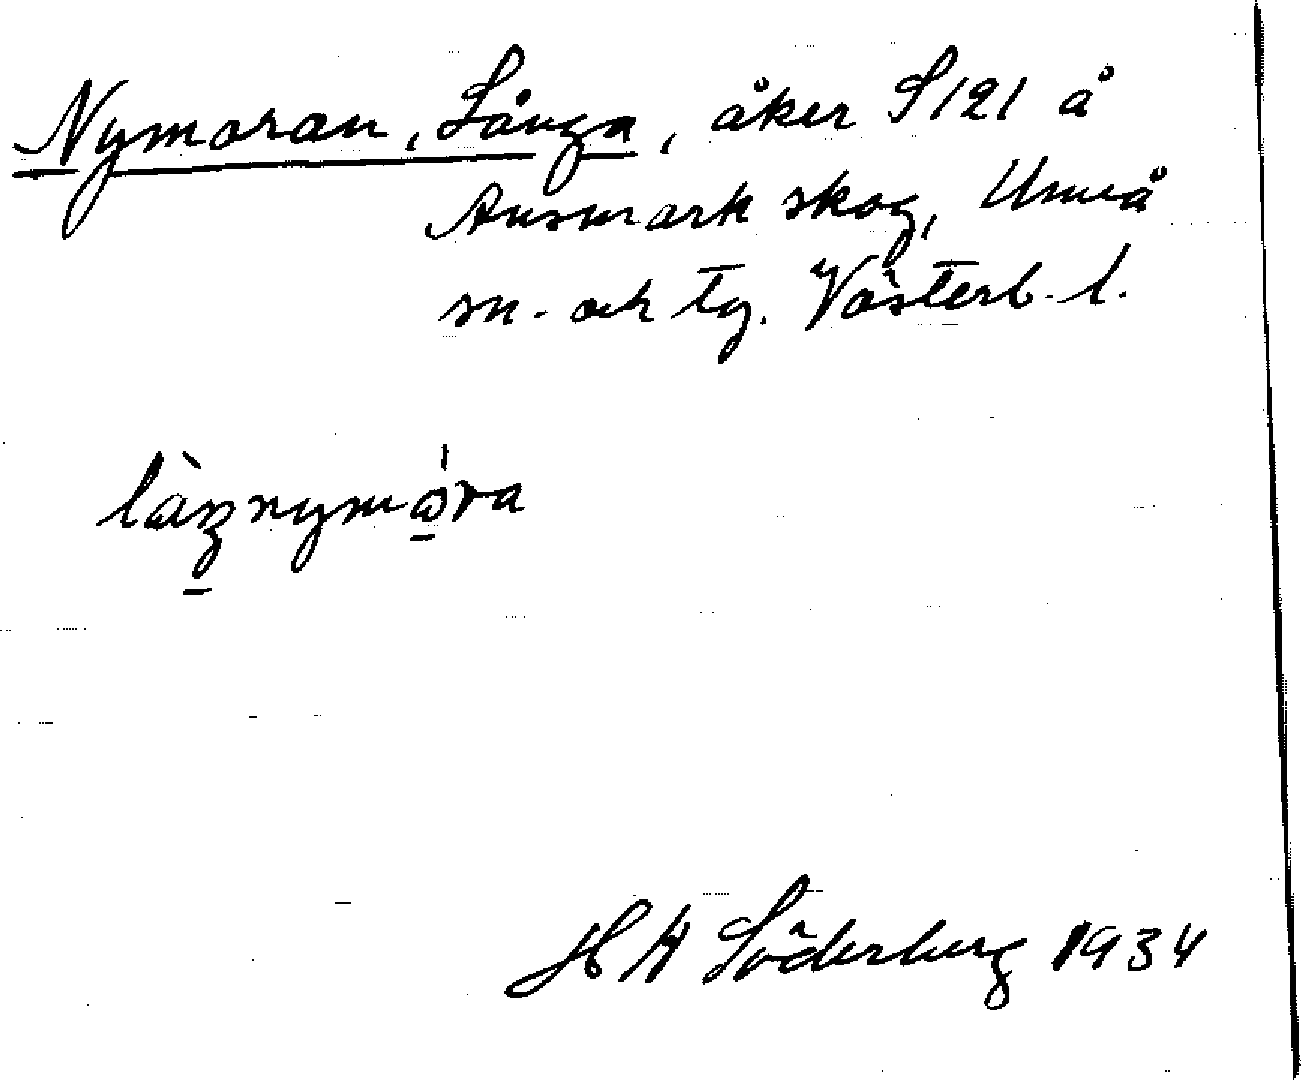 Nymoran, Långa, åker S121 å
Ansmark skog, Umeå
sn. och tg. Västerb. l.
H A Söderberg 1934